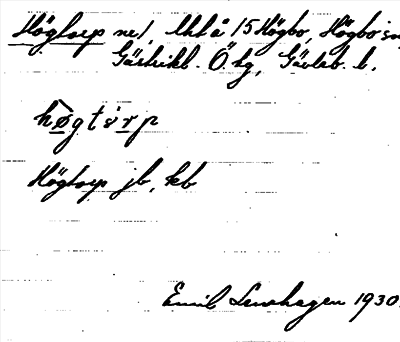 Högtorp ne/, Lht å 15 Högbo, Högbo sn,
Gästrikl. Ö. hg, Gävleb. l.
høgtorp
Högtorp jb, kb
Emil Lenhagen 1930.